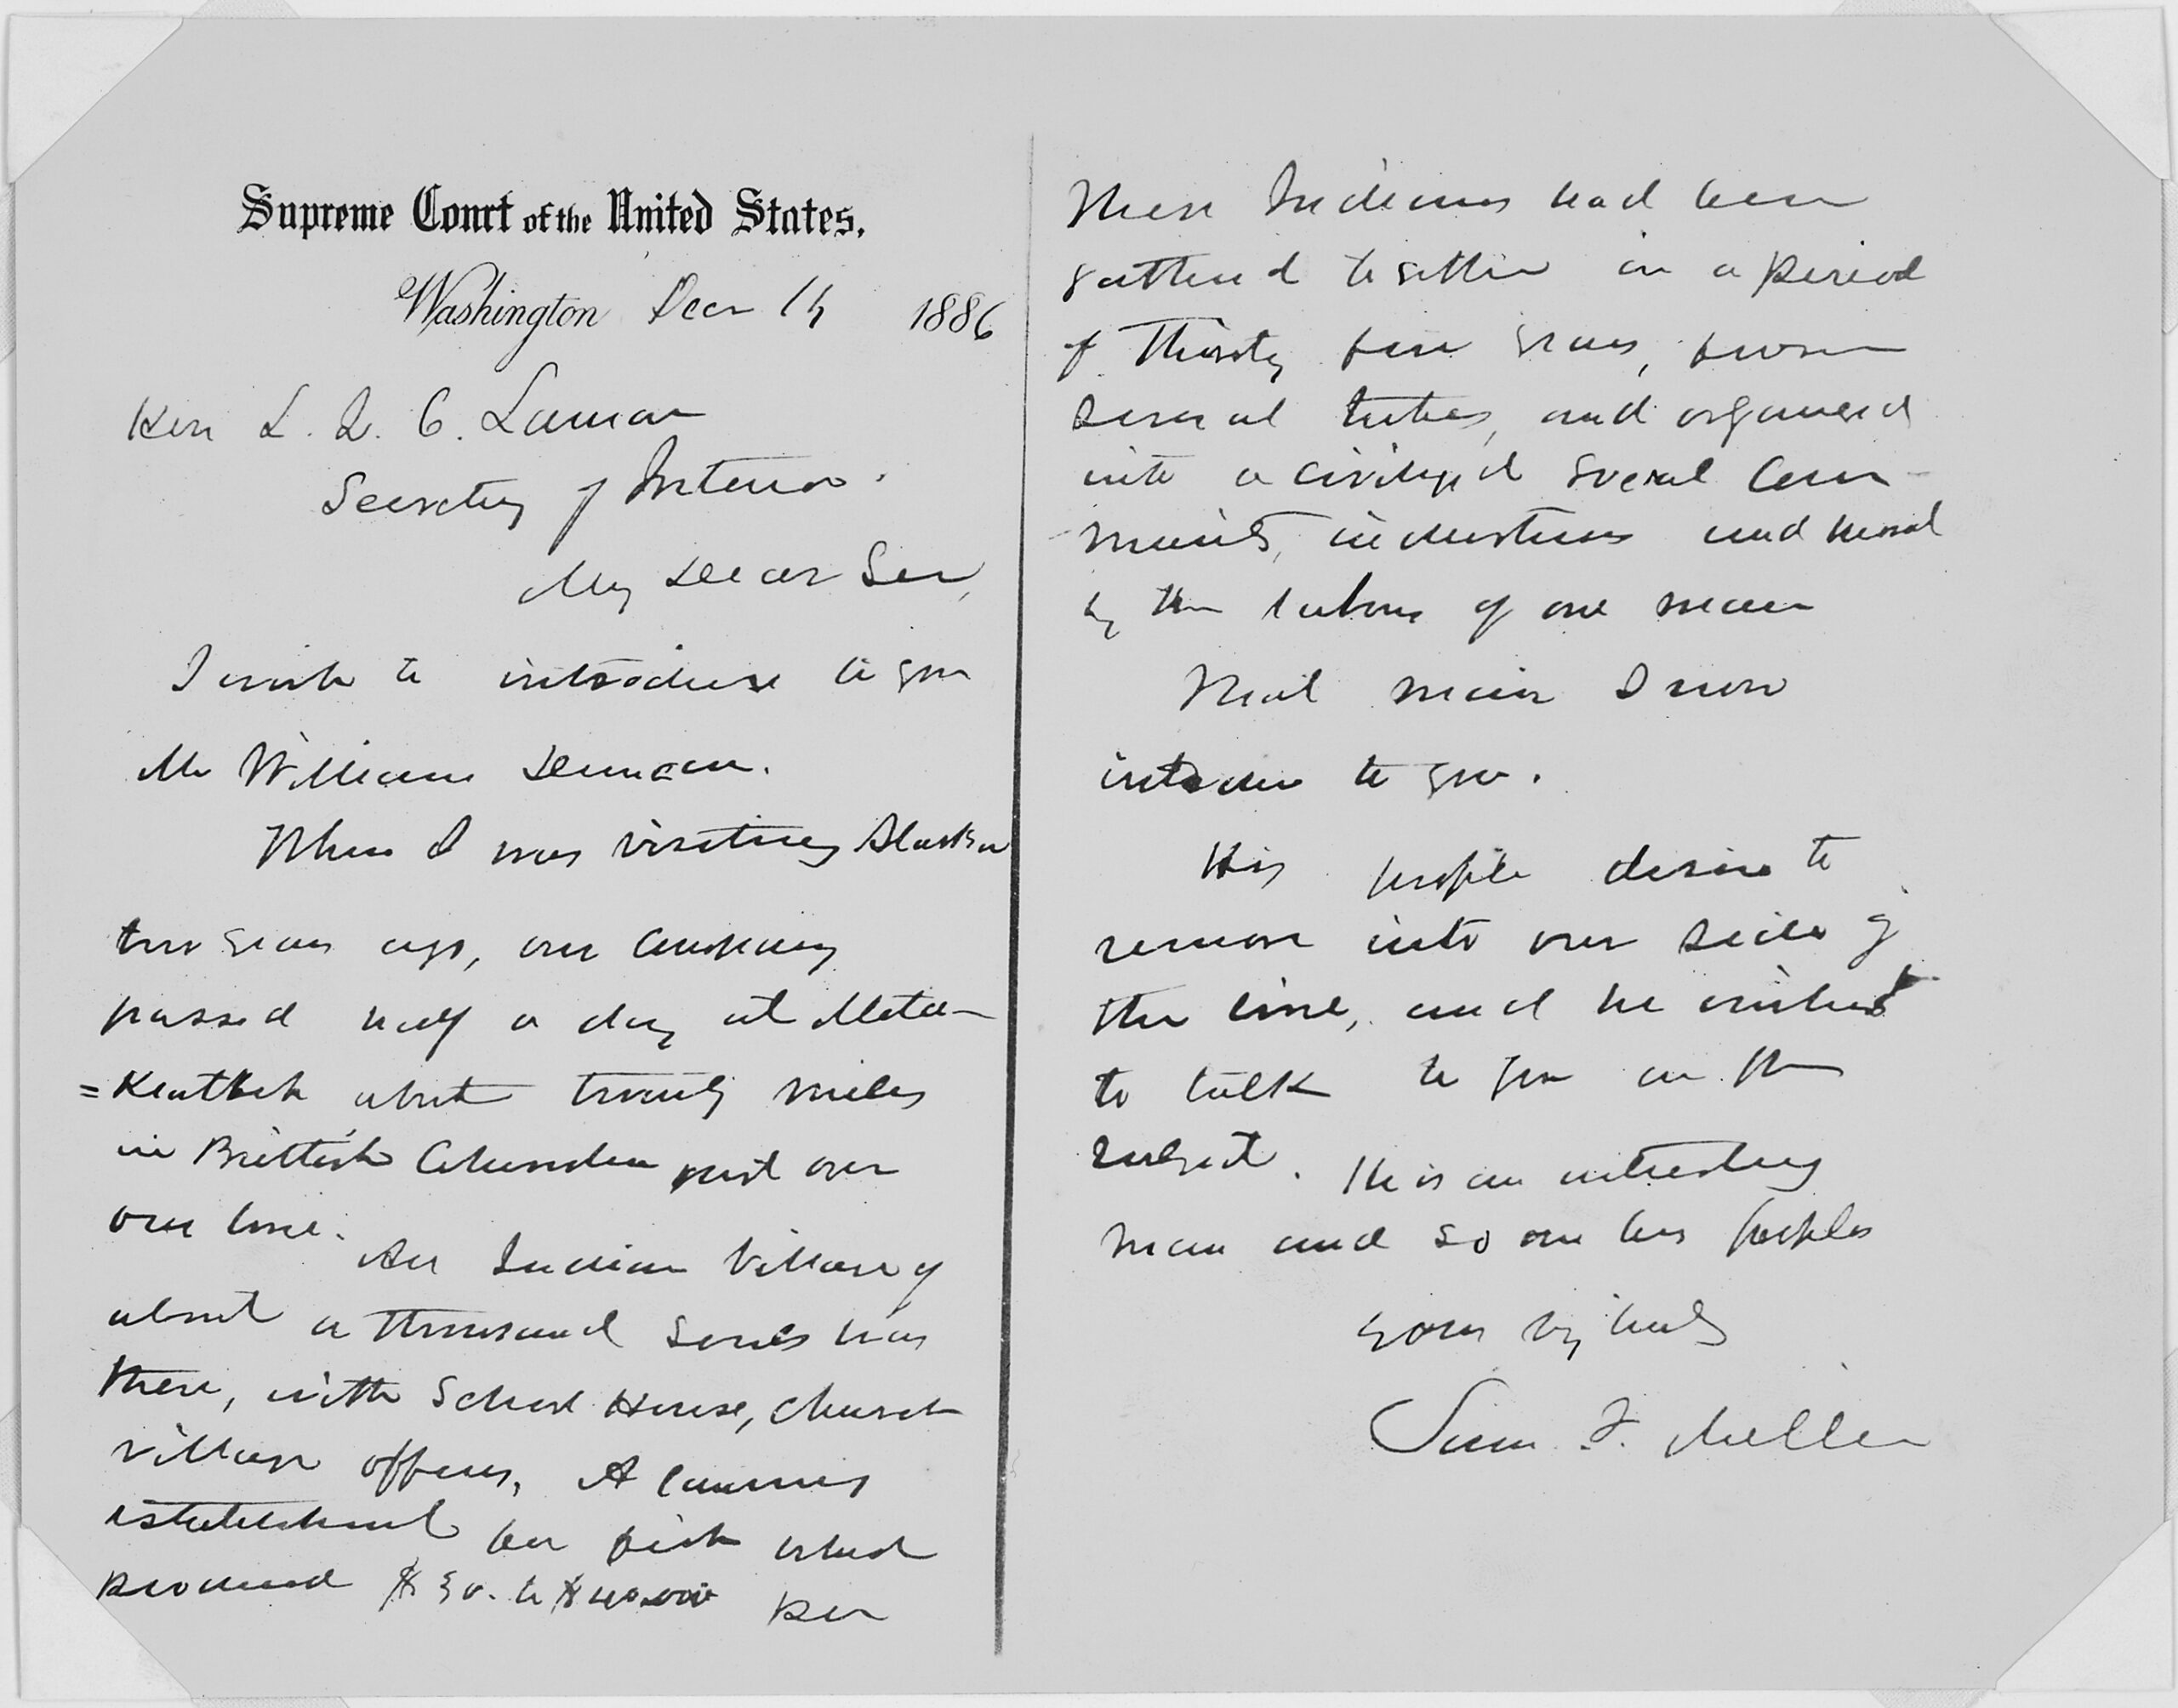 Supreme Court of the United States.
Washington Decr 14 1886
Hon L. Q. C. Lamar
Secretary of Interior.
My Dear Sir,
I wish to introduce to you
Mr William Duncan.
When I was visiting Alaska
two years ago, our company
passed half a day at Meta-
=Keatleh about twenty miles
in Brittish Columbia just over
our line. An Indian Village of
about a thousand souls was
there, with School House, Church
village offices, A canning
establishment for fish which
produced $30. to $40.000 per
These Indians had been
gathered together in a period
of Thirty five years, from
several tribes, and organised
into a civilized social Com-
-munity, industrious and moral
by the labour of one man
That man I now
introduce to you.
His people desire to
remove into our side of
the line, and he wishes
to talk to you on the
subject. He is an interesting
man and so are his people
Yours very truly
Sam. F. Miller